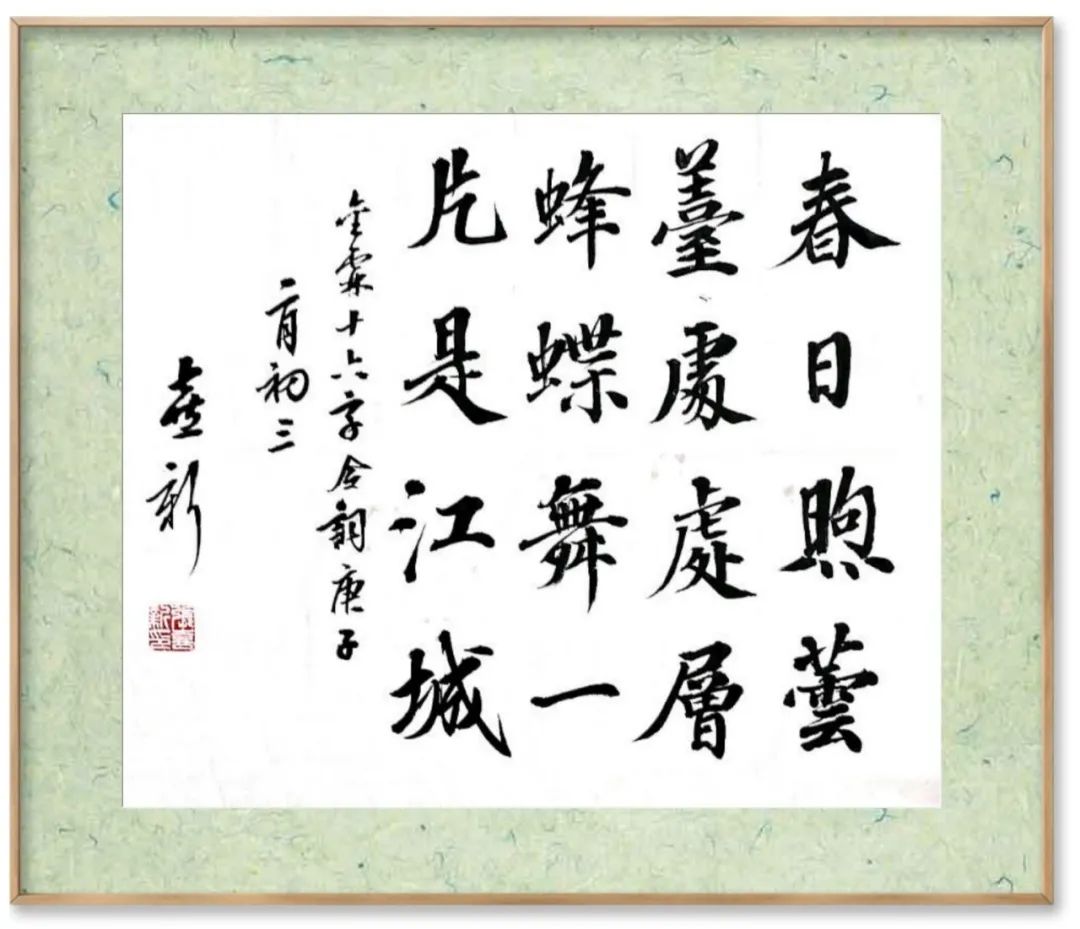 春日煦蕓
薹處處層
蜂蝶舞一
片是江城
金霖十六字令詞庚子
二月初三
喜新